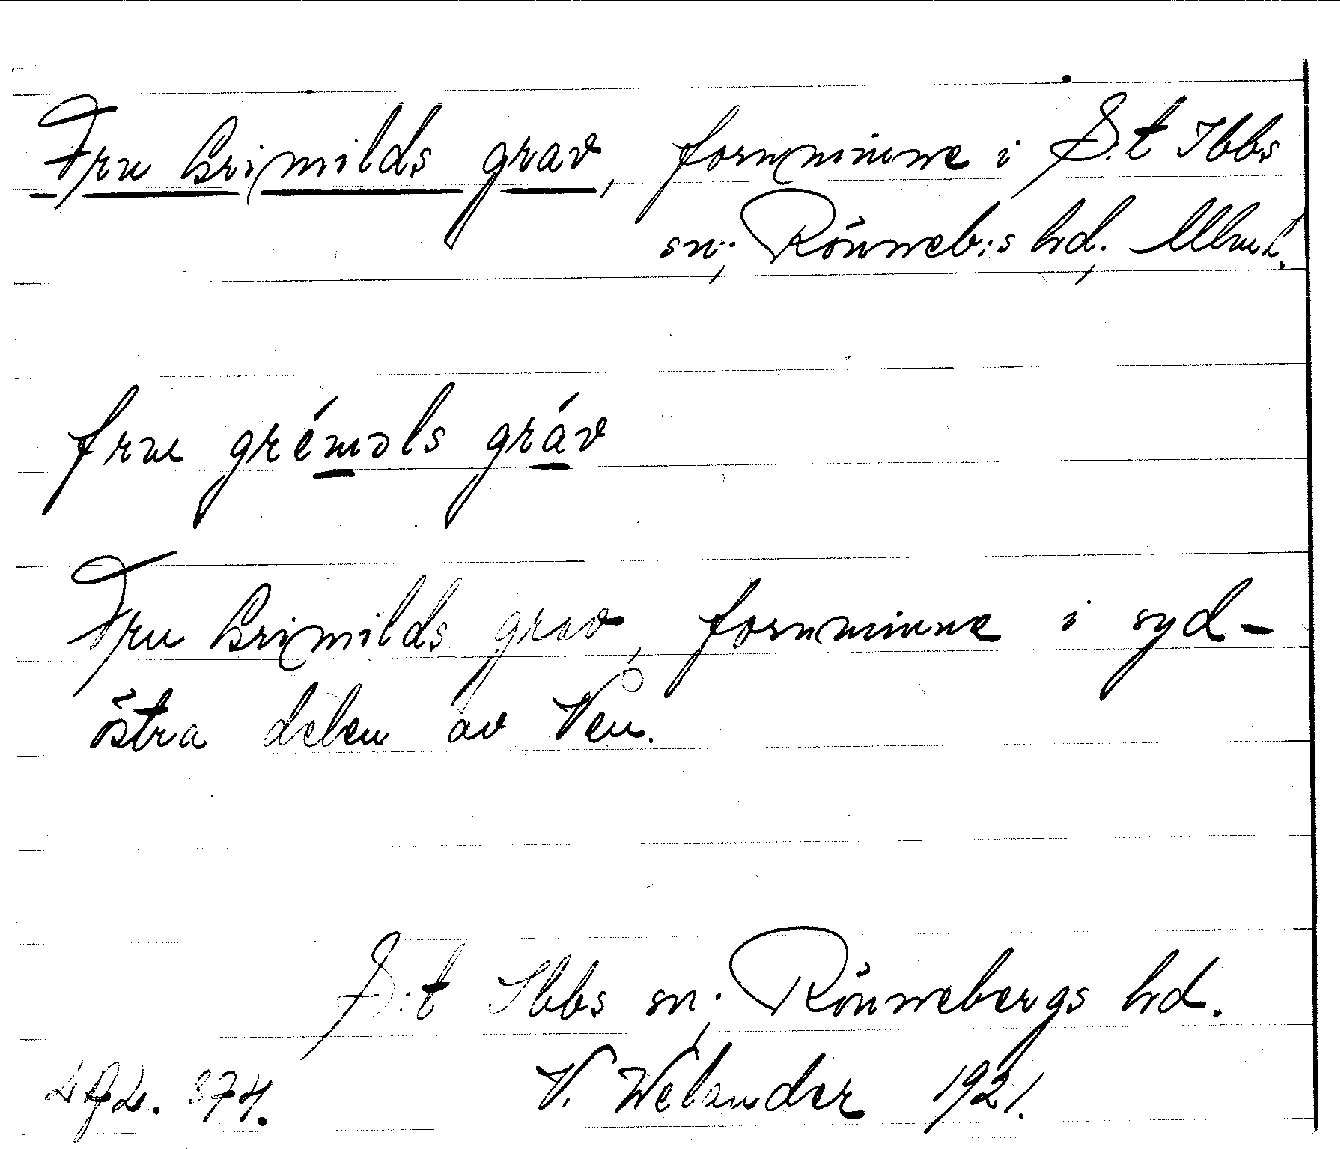 Fru Grimilds grav, fornminne i S:t Ibbs
sn; Rönneb:s hd, Mlmh.
frue gréməls gráv
Fru Grimilds grav, fornminne i syd-
östra delen av Ven.
S:t Ibbs sn; Rönnebergs hd.
374. V. Welander 1921.